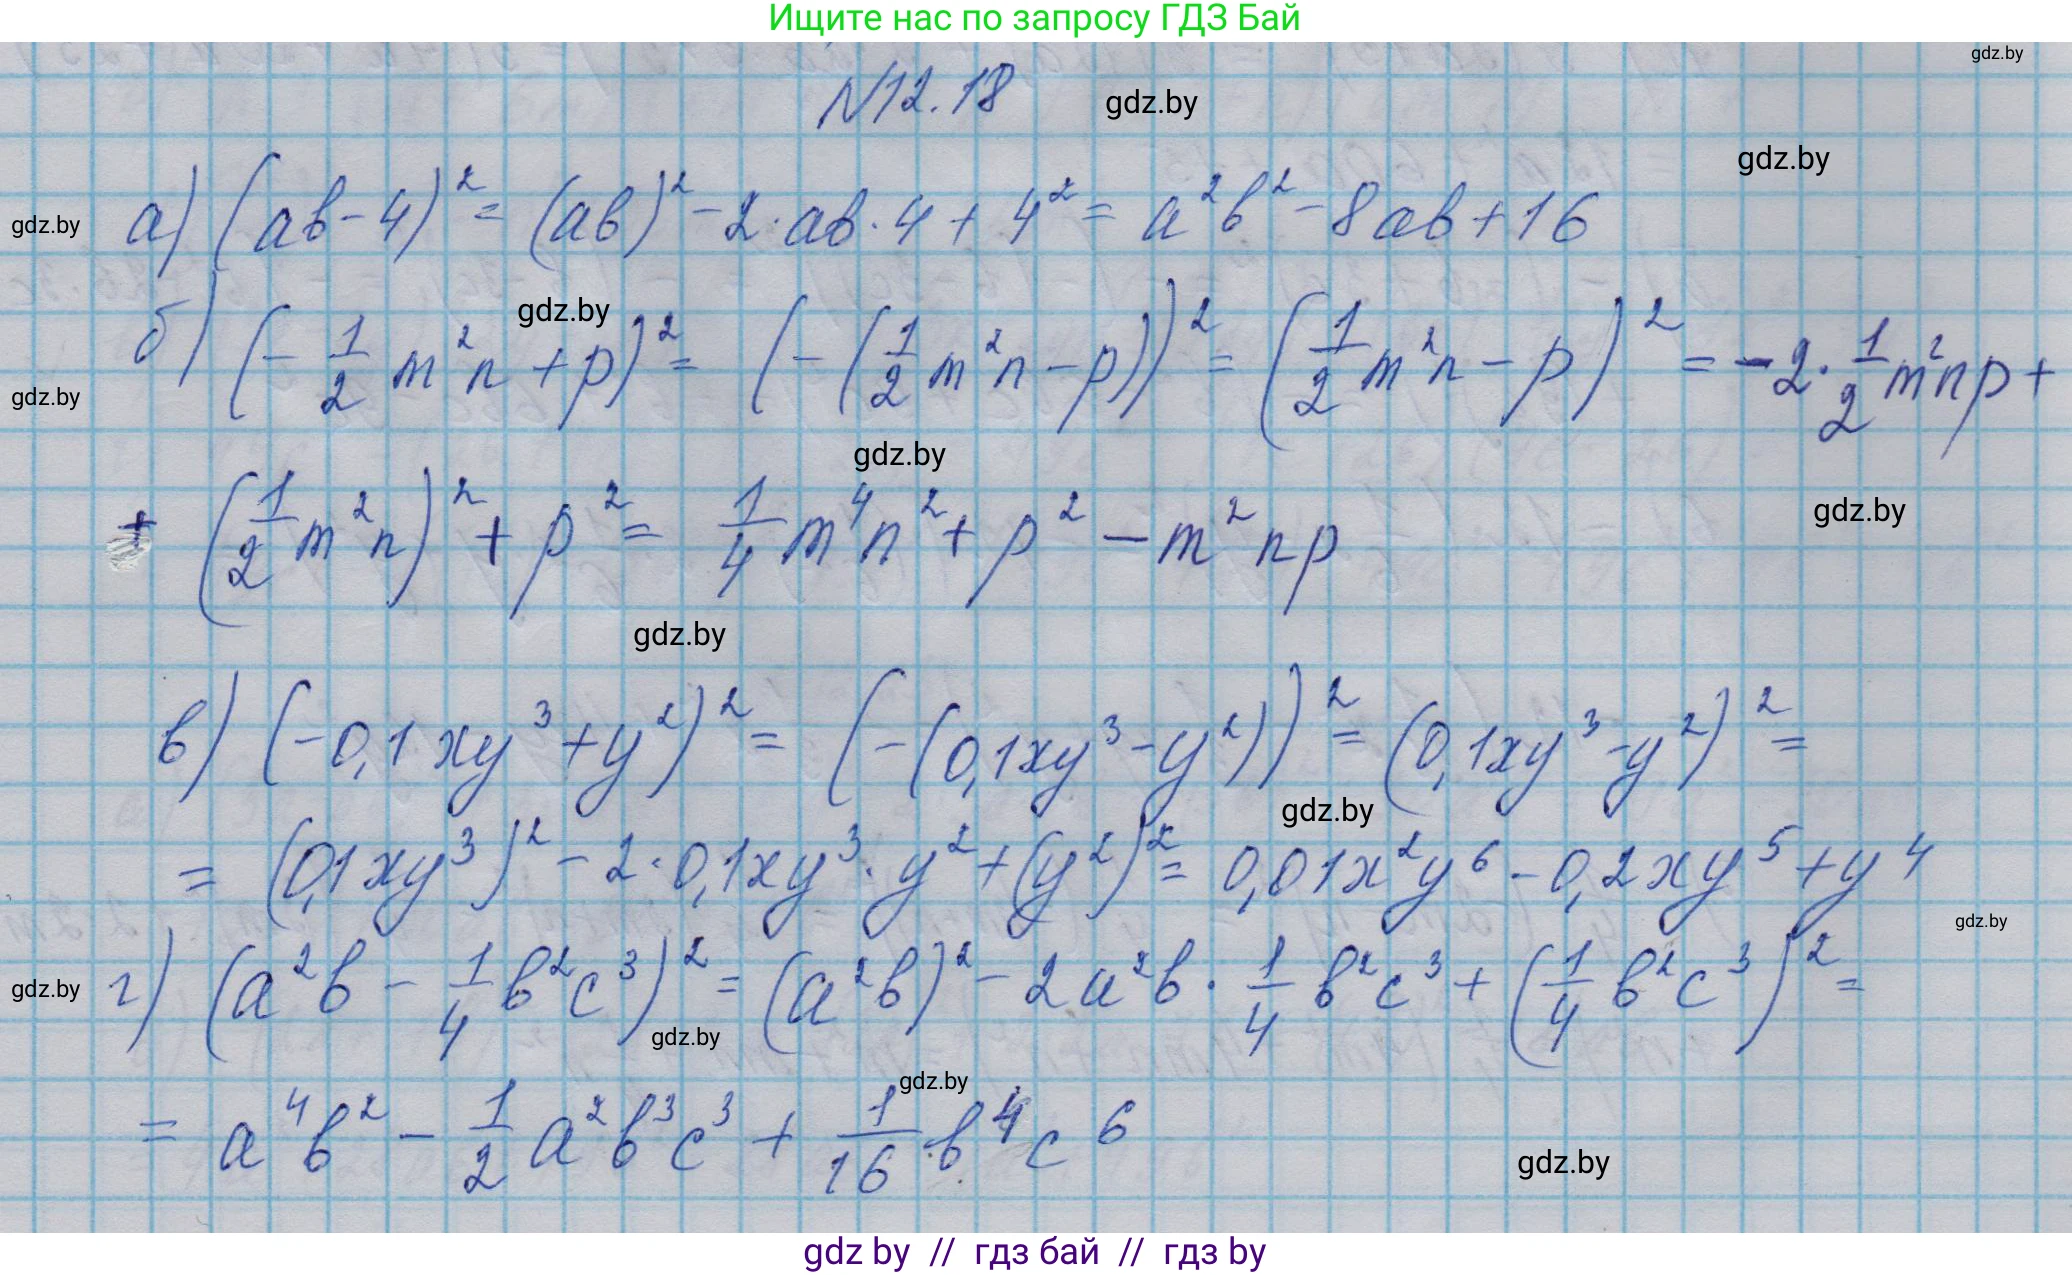 Ищите нас по запросу ГДЗ Бай
gdz.by
N12.18
gdz.by
gdz.by
gdz.by
а) (ab-4)² = (ab)² - 2·ab·4 + 4² = a²b² - 8ab + 16
gdz.by
б) (-1/2 m²n + p)² = (-(1/2 m²n - p))² = (1/2 m²n - p)² = -2·1/2 m²np +
gdz.by
gdz.by
gdz.by
+ (1/2 m²n)² + p² = 1/4 m⁴n² + p² - m²np
gdz.by
в) (-0,1xy³ + y²)² = (-(0,1xy³ - y²))² = (0,1xy³ - y²)² =
gdz.by
= (0,1xy³)² - 2·0,1xy³·y² + (y²)² = 0,01x²y⁶ - 0,2xy⁵ + y⁴
gdz.by
gdz.by
г) (a²b - 1/4 b²c³)² = (a²b)² - 2a²b · 1/4 b²c³ + (1/4 b²c³)² =
gdz.by
gdz.by
= a⁴b² - 1/2 a²b³c³ + 1/16 b⁴c⁶
gdz.by
gdz by // гдз бай // гдз by